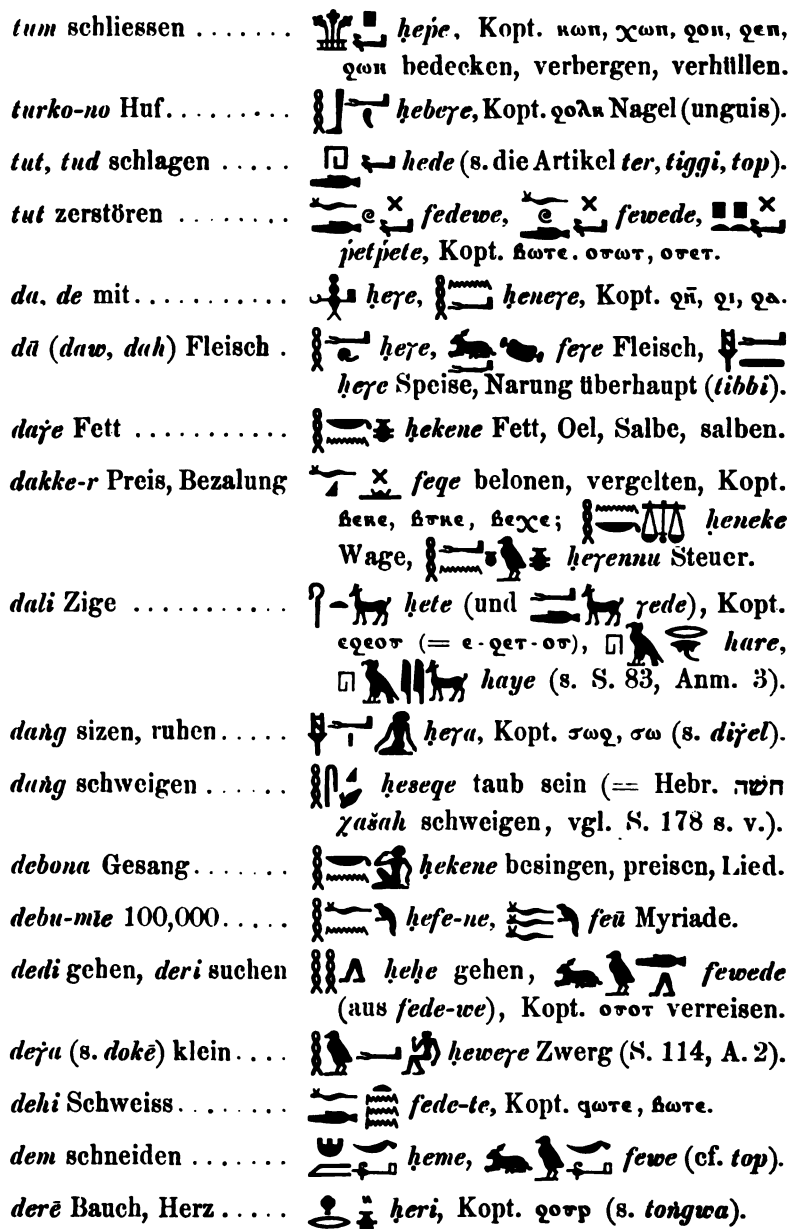 tum schliessen ....... ḥeṗe, Kopt. ⲕⲱⲡ, ⲭⲱⲡ, ϩⲟⲡ, ϩⲉⲡ,
ϩⲱⲡ bedecken, verbergen, verhüllen.
turko-no Huf.......... ḥebeγe, Kopt. ϩⲟⲗⲕ Nagel (unguis).
tut, tud schlagen ..... hede (s. die Artikel ter, tiggi, top).
tut zerstören ........ fedewe, fewede,
ṗetṗete, Kopt. ⲃⲱⲧⲉ. ⲟⲩⲱⲧ, ⲟⲩⲉⲧ.
da, de mit........... ḥeγe, ḥeneγe, Kopt. ϩⲛ̄, ϩⲓ, ϩⲁ.
dū (daw, dah) Fleisch . ḥeγe, feγe Fleisch,
ḥeγe Speise, Narung überhaupt (tibbi).
daγ̇e Fett ........... ḥekene Fett, Oel, Salbe, salben.
dakke-r Preis, Bezalung feqe belonen, vergelten, Kopt.
ⲃⲉⲕⲉ, ⲃⲩⲕⲉ, ⲃⲉⲭⲉ; ḥeneke
Wage, ḥeγennu Steuer.
dali Zige ........... ḥete (und γede), Kopt.
ⲉϩⲉⲟⲩ (= ⲉ-ϩⲉⲧ-ⲟⲩ), hare,
haye (s. S. 83, Anm. 3).
daṅg sizen, ruhen..... ḥeγa, Kopt. ⲩⲱϩ, ⲩⲱ (s. diγ̇el).
daṅg schweigen ...... ḥeseqe taub sein (= Hebr. חשה
χašah schweigen, vgl. S. 178 s. v.).
debona Gesang....... ḥekene besingen, preisen, Lied.
debu-mīe 100,000..... ḥefe-ne, feū Myriade.
dedi gehen, deri suchen ḥeḥe gehen, fewede
(aus fede-we), Kopt. ⲟⲩⲟⲧ verreisen.
deγ̇a (s. dokē) klein.... ḥeweγe Zwerg (S. 114, A. 2).
dehi Schweiss........ fede-te, Kopt. ϥⲱⲧⲉ, ⲃⲱⲧⲉ.
dem schneiden ....... ḥeme, fewe (cf. top).
derē Bauch, Herz..... ḥeri, Kopt. ϩⲟⲩⲣ (s. toṅgwa).